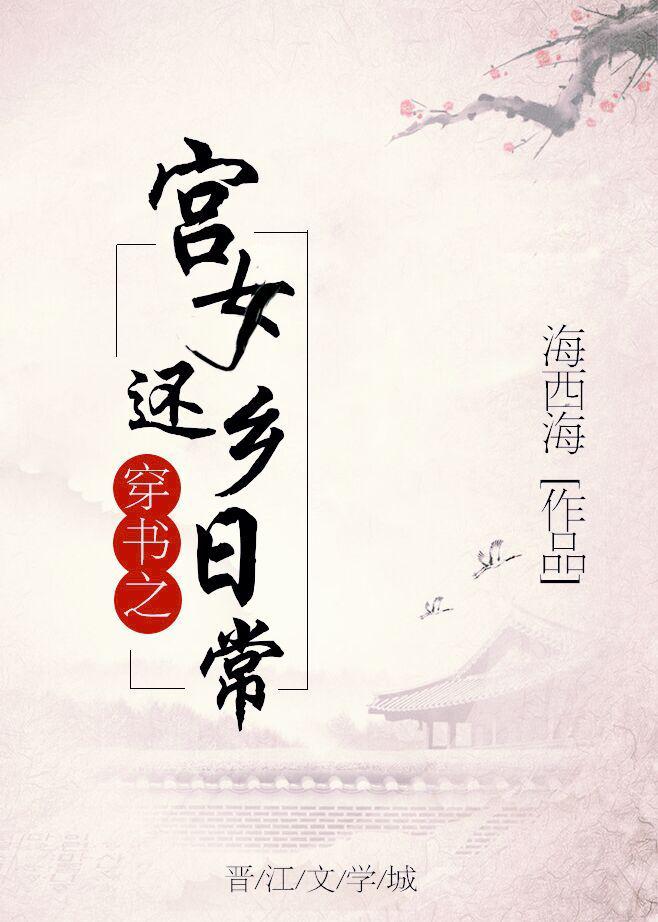 穿书之
宫女还乡日常
海西海[作品]
晋/江/文/学/城